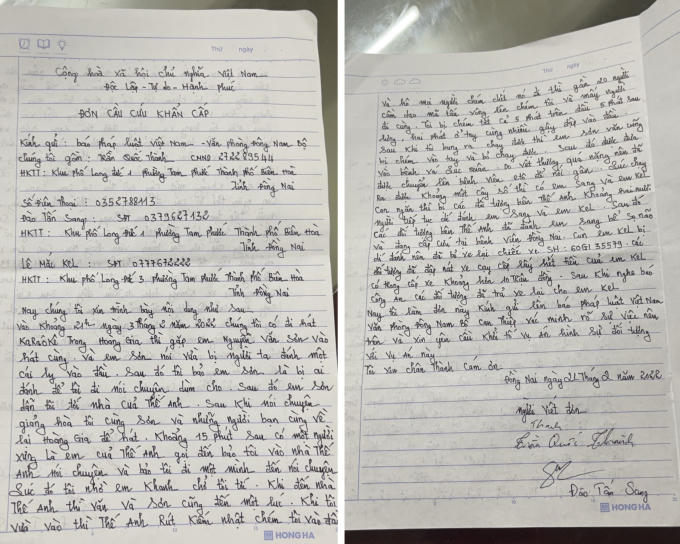 Thứ ngày
Cộng hoà xã hội chủ nghĩa Việt Nam
Độc Lập - Tự do - Hành Phúc
ĐƠN CẦU CỨU KHẨN CẤP
Kính gửi: báo pháp luật Việt Nam - Văn phòng Đông Nam Bộ
chúng tôi gồm: Trần Quốc Thành CMND 272289544
HKTT: Khu phố Long đế 1 phường Tam phước Thành phố Biên Hoà
Tỉnh Đồng Nai
Số Điện Thoại: 0352788113
Đào Tấn Sang: SĐT 0379627132
HKTT: Khu phố Long Đế 1 phường Tam Phước Thành phố Biên Hoà
Tỉnh Đồng Nai
Lê Mắc Kel: SĐT 0777672222
HKTT: Khu phố Long Đế 3 phường Tam Phước Thành phố Biên Hoà
Tỉnh Đồng Nai
Nay chúng tôi xin trình bày nội dung như sau
Vào Khoảng 21h ngày 3 Tháng 2 năm 2022 chúng tôi có đi hát
Karaoke Trong Hoàng Gia thì gặp em Nguyễn Văn Sơn vào
hát cùng và em Sơn nói vừa bị người ta đánh một
cái ly vào đầu. Sau đó tôi bảo em Sơn là bị ai
đánh để tôi đi nói chuyện dùm cho Sau đó em Sơn
dẫn tôi tới nhà của Thế Anh. Sau khi nói chuyện
giảng hoà tôi cùng Sơn và những người bạn cùng về
lại Hoàng Gia để hát. Khoảng 15 phút sau có một người
xưng là em của Thế Anh gọi đến bảo tôi vào nhà Thế
Anh nói chuyện và bảo tôi đi một mình đến nói chuyện
Lúc đó tôi nhờ em Khanh chở tôi tới. Khi đến nhà
Thế Anh thì Văn và Sơn cũng đến một lúc. Khi tôi
vừa vào thì Thế Anh Rút Kiếm nhật chém tôi vào đầu
HONG HA
Thứ ngày
Và hô mọi người chém chết nó đi thì gần 20 người
cầm dao mã tấu xông lên chém tôi và mấy người
đi cùng. Tôi bị chém tất cả 5 phát trên đầu 5 phát sau
lưng, hai phát ở tay cùng nhiều gậy đập vào đầu.
Sau khi tôi bung ra chạy được thì em Sơn văn cũng
bị chém vào tay và bỏ chạy được. Sau đó được đưa
vào bệnh và vết thương quá nặng nên đã
được chuyển lên bệnh viên để nối gân. Lúc chạy
ra được khoảng một cây số thì có em Sang và em Kel
Con ngăn thì bị các đối tượng bên Thế Anh khoảng mười
người tiếp tục đi đánh em Sang và em Kel. Sau đó
Các đối tượng bên Thế Anh đã đánh em Sang bể Sọ não
và đang cấp cứu tại bệnh viện Đồng Nai. Còn em Kel bị
đã đánh nên đã bỏ xe lại chiếc xe SH: 60G1 35579. các
đối tượng đã đập nát xe cạy cốp lấy hết tiền của em Kel
có trong cốp xe khoảng hơn 10 triệu đồng. Sau khi nghe báo
Công An các đối tượng đã trả xe lại cho em Kel.
Nay tôi làm đơn này kính gửi lên báo pháp luật Việt Nam
Văn phòng Đông Nam Bộ can Thiệp xác minh rõ sự việc nêu
trên và xin yêu cầu khởi tố vụ án hình sự đối tượng
với vụ án này
Tôi xin chân Thành Cảm ơn
Đồng Nai ngày 21 Tháng 2 năm 2022
người Viết đơn
Thanh
Trần Quốc Thành
Đào Tấn Sang
HONG HA